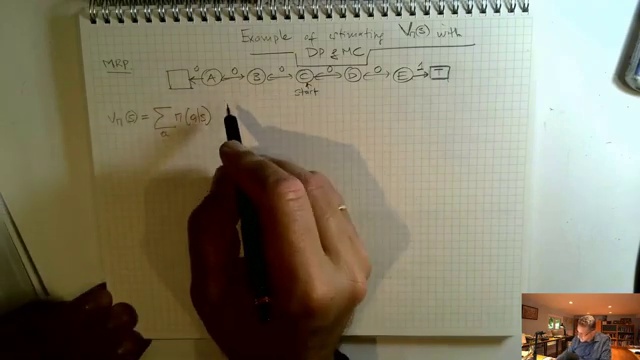 Example of estimating Vπ(s) with
DP & MC
MRP
0 A 0 B 0 C 0 D 0 E 1 T
start
Vπ(s) = Σ π(a|s)
a